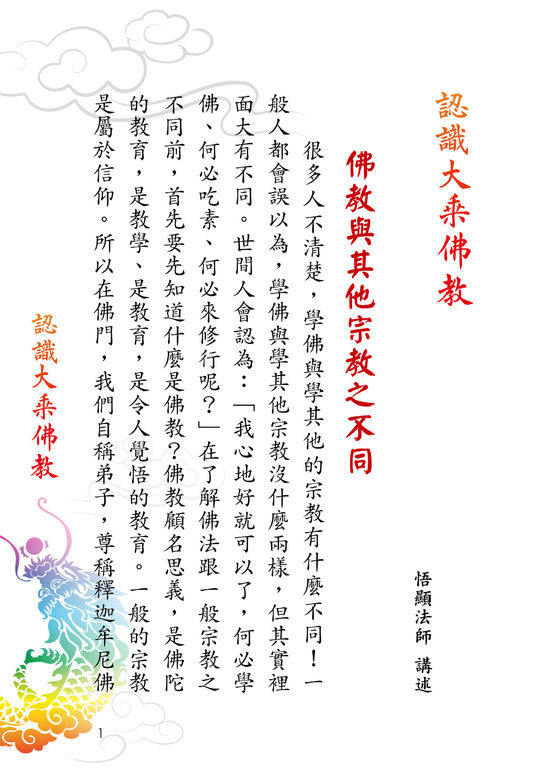 認識大乘佛教
悟顯法師 講述
佛教與其他宗教之不同
很多人不清楚，學佛與學其他的宗教有什麼不同！一
般人都會誤以為，學佛與學其他宗教沒什麼兩樣，但其實裡
面大有不同。世間人會認為：「我心地好就可以了，何必學
佛、何必吃素、何必來修行呢？」在了解佛法跟一般宗教之
不同前，首先要先知道什麼是佛教？佛教顧名思義，是佛陀
的教育，是教學、是教育，是令人覺悟的教育。一般的宗教
是屬於信仰。所以在佛門，我們自稱弟子，尊稱釋迦牟尼佛
認識大乘佛教
1